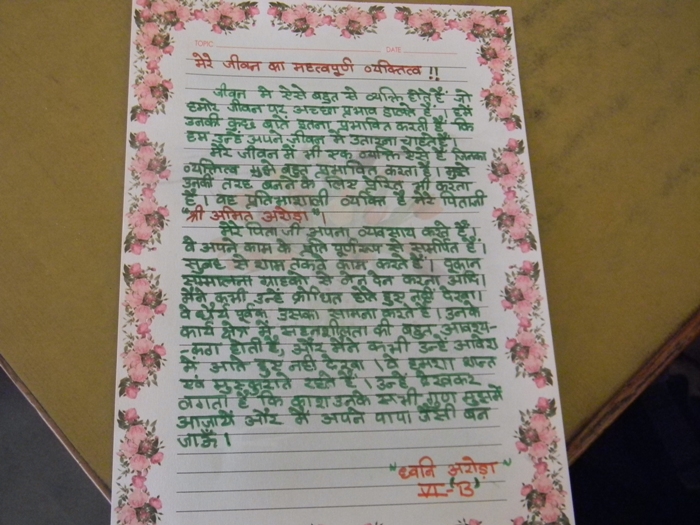 TOPIC DATE
मेरे जीवन का महत्वपूर्ण व्यक्तित्व !!
जीवन में ऐसे बहुत से व्यक्ति होते हैं जो
हमारे जीवन पर अच्छा प्रभाव डालते हैं। हमे
उनकी कुछ बातें इतना प्रभावित करती हैं कि
हम उन्हें अपने जीवन में उतारना चाहते हैं।
मेरे जीवन में भी एक व्यक्ति ऐसे हैं जिनका
व्यक्तित्व मुझे बहुत प्रभावित करता है। मुझे
उनकी तरह बनने के लिए प्रेरित भी करता
है। वह प्रतिभाशाली व्यक्ति है मेरे पिताजी
श्री अमित अरोड़ा।
मेरे पिता जी अपना व्यवसाय करते हैं,
वे अपने काम के प्रति पूर्ण रूप से समर्पित हैं।
सुबह से शाम तक वे काम करते हैं। दुकान
सम्भालना ग्राहकों से लेन देन करना आदि।
मैंने कभी उन्हें क्रोधित होते हुए नहीं देखा।
वे धैर्य पूर्वक उसका सामना करते हैं। उनके
कार्य क्षेत्र में सहनशीलता की बहुत आवश्य-
-कता होती है, और मैंने कभी उन्हें आवेश
में आते हुए नहीं देखा। वे हमेशा शान्त
एवं मुस्कुराते रहते हैं। उन्हें देखकर
लगता है कि काश उनके सभी गुण मुझमें
आजायें और मैं अपने पापा जैसी बन
जाऊँ।
"ध्वनि अरोड़ा"
VI-'B'